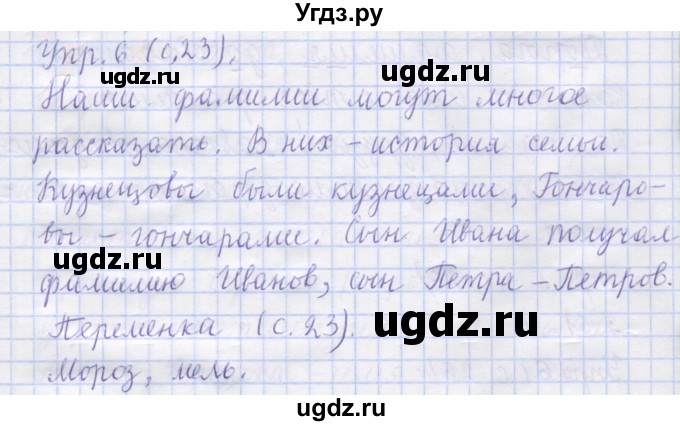 Угдз.ру
Упр. 6 (с,23).
ugdz.ru ugdz.ru
Наши фамилии могут многое
рассказать. В них – история семьи.
Кузнецовы были кузнецами, Гончаро-
вы – гончарами. Сын Ивана получал
ugdz.ru
фамилию Иванов, сын Петра – Петров.
Переменка (с. 23).
ugdz.ru
Мороз, мель.
ugdz.ru